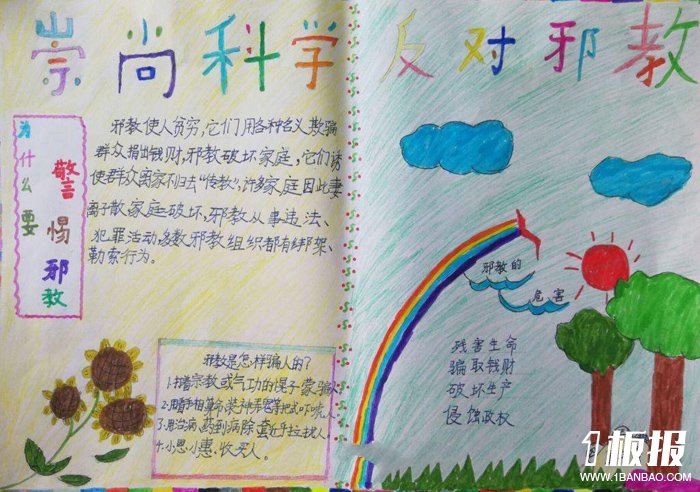 崇尚科学 反对邪教
为什么要
警惕邪教
邪教使人贫穷,它们用各种名义欺骗
群众捐出钱财,邪教破坏家庭,它们诱
使群众离家不归去“传教”,许多家庭因此妻
离子散家庭破坏,邪教从事违法、
犯罪活动,多数邪教组织都有绑架、
勒索行为。
邪教是怎样骗人的?
1.打着宗教或气功的幌子蒙骗人
2.用看手相算命装神弄鬼等把式吓唬人
3.用治病,药到病除套近乎拉拢人。
4.小恩小惠,收买人。
邪教的
危害
残害生命
骗取钱财
破坏生产
侵蚀政权
1板报
WWW.1BANBAO.COM